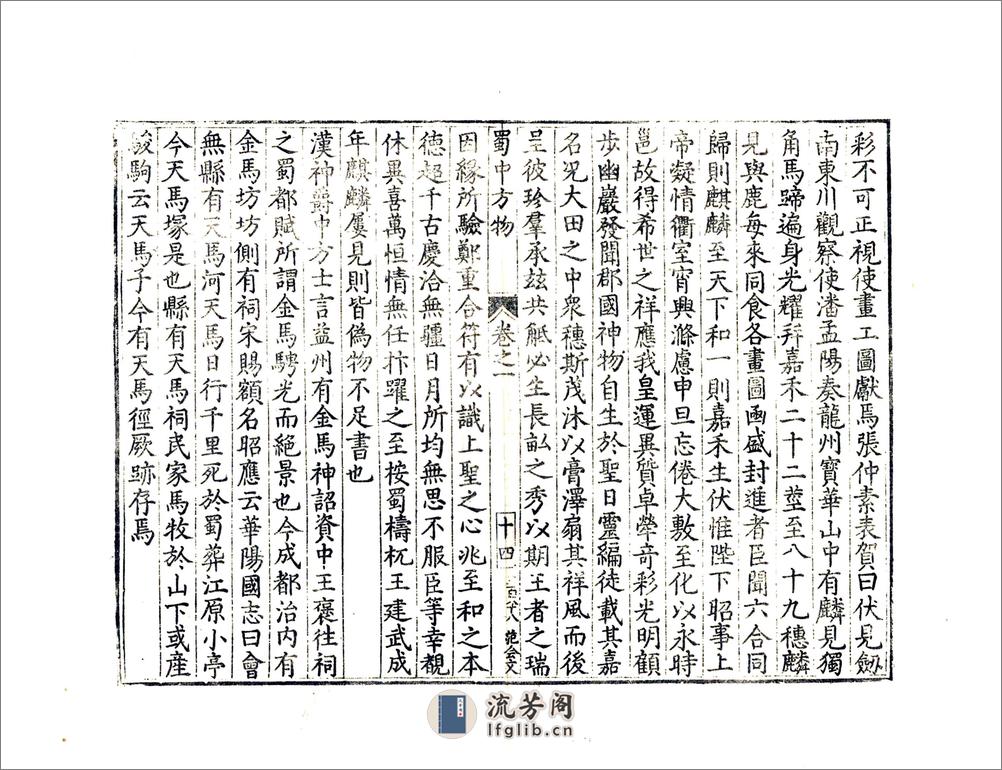 彩不可正視使畫工圖獻焉張仲素表賀曰伏見劒
南東川觀察使潘孟陽奏龍州寶華山中有麟見獨
角馬蹄遍身光耀并嘉禾二十二莖至八十九穗麟
見與鹿每來同食各畫圖函盛封進者臣聞六合同
歸則麒麟至天下和一則嘉禾生伏惟陛下昭事上
帝凝情衢室宵興滌慮申旦忘倦大敷至化以永時
邕故得希世之祥應我皇運異質卓犖奇彩光明顧
步幽巖發聞郡國神物自生於聖日靈編徒載其嘉
名况大田之中衆穗斯茂沐以膏澤扇其祥風而後
呈彼珍羣承玆共觝必生長畝之秀以期王者之瑞
蜀中方物 卷之一 十四
因緣所驗鄭重合符有以識上聖之心兆至和之本
德超千古慶洽無疆日月所均無思不服臣等幸覩
休異喜萬恒情無任忭躍之至按蜀檮杌王建武成
年麒麟屢見則皆僞物不足書也
漢神爵中方士言益州有金馬神詔資中王褒往祠
之蜀都賦所謂金馬騁光而絕景也今成都治内有
金馬坊坊側有祠宋賜額名昭應云華陽國志曰會
無縣有天馬河天馬日行千里死於蜀葬江原小亭
今天馬塚是也縣有天馬祠民家馬牧於山下或産
駿駒云天馬子今有天馬徑厥跡存焉
流芳阁
lfglib.cn